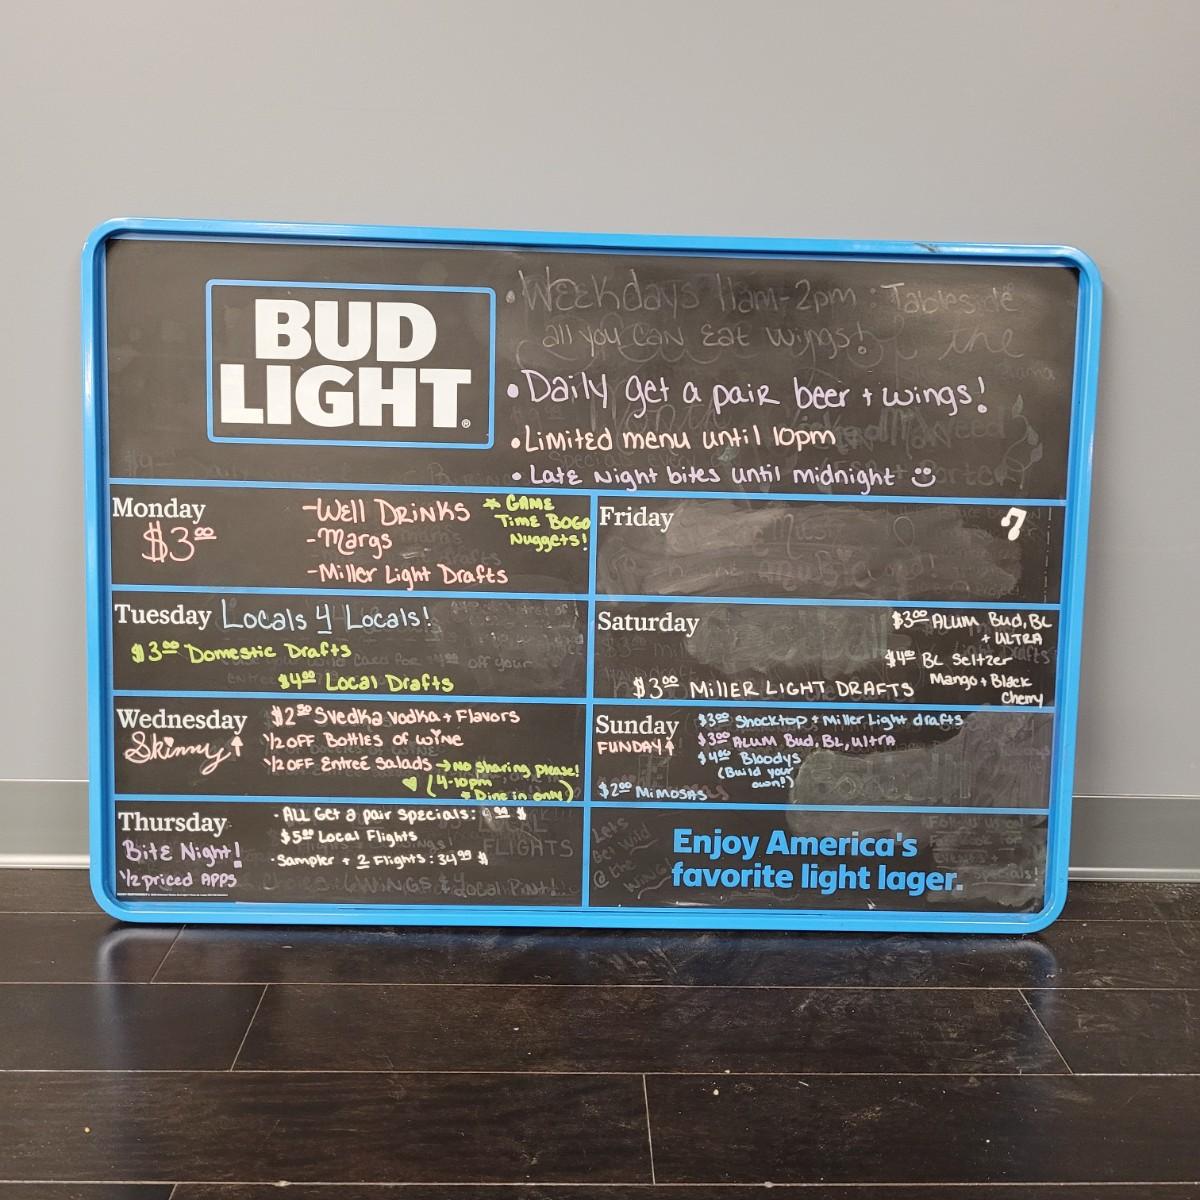 BUD
LIGHT®
• Weekdays 11am-2pm: Tableside
all you can eat wings!
• Daily get a pair beer + wings!
• Limited menu until 10pm
• Late Night bites until midnight
Monday
$3.00
-Well Drinks
-Margs
-Miller Light Drafts
* GAME
Time BOGO
Nuggets!
Tuesday
Locals 4 Locals!
$3.00 Domestic Drafts
$4.00 Local Drafts
Wednesday
Skinny
$2.50 Svedka Vodka + Flavors
1/2 OFF Bottles of wine
1/2 OFF Entreé Salads → No sharing please!
(4-10pm
* Dine in only)
Thursday
Bite Night!
1/2 priced APPS
· ALL Get a pair specials: 9.99 $
$5.00 Local Flights
· Sampler + 2 Flights: 34.99 $
Friday
Saturday
$3.00 ALUM Bud, BL
+ ULTRA
$4.00 BL Seltzer
Mango + Black
Cherry
$3.00 MILLER LIGHT DRAFTS
Sunday
FUNDAY
$3.00 Shocktop + Miller Light drafts
$3.00 ALUM Bud, BL, Ultra
$4.00 Bloodys
(Build your
own!)
$2.00 MIMOSAS
Enjoy America's
favorite light lager.